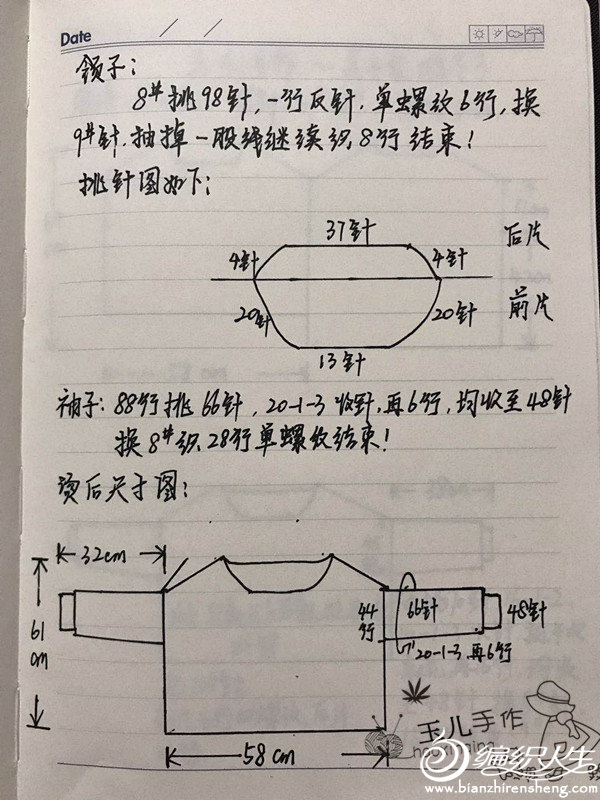 Date
领子:
8# 挑98针,一行反针,单螺纹6行,换
9#针,抽掉一股线继续织8行结束!
挑针图如下:
37针
后片
4针 4针
20针 20针
前片
13针
袖子: 88行挑66针, 20-1-3收针,再6行,均收至48针
换8#织28行单螺纹结束!
烫后尺寸图:
32cm
61cm
44行
66针
48针
20-1-3 再6行
58cm
玉儿手作
编织人生
www.bianzhirensheng.com